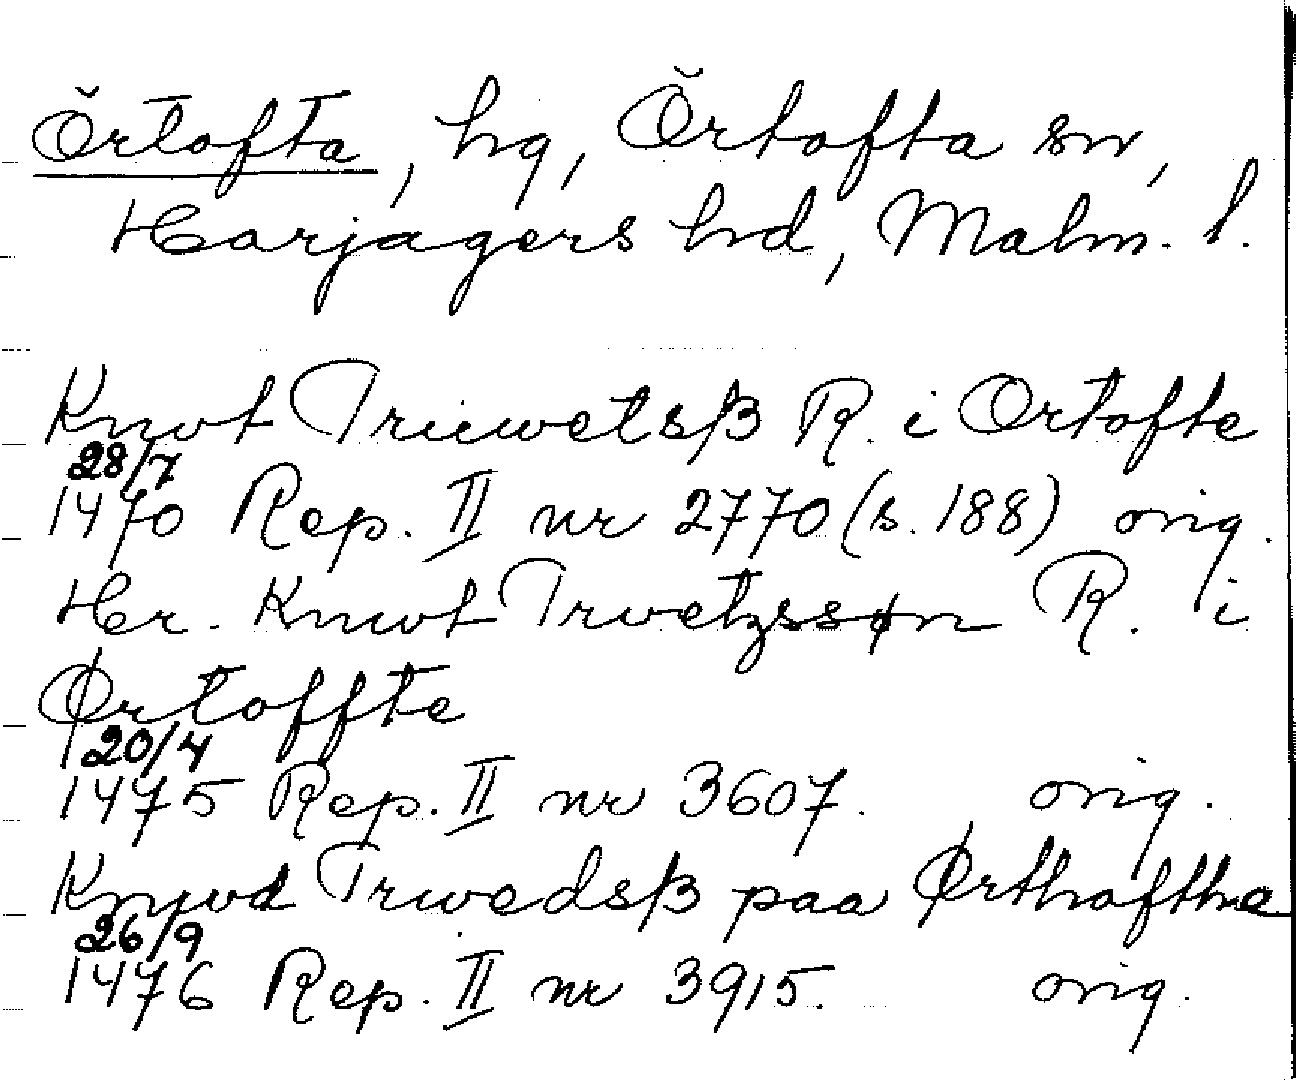 Örtofta, hg, Örtofta sn,
Harjagers hd, Malm. l.
Knwt Truwetsβ R. i Ortofte
28/7
1470 Rep. II nr 2770 (s. 188) orig.
Her. Knwt Trwetzssøn R. i
Ørtoffte
20/4
1475 Rep. II nr 3607. orig.
Knwd Trwedsβ paa Ørthofthe
26/9
1476 Rep. II nr 3915. orig.